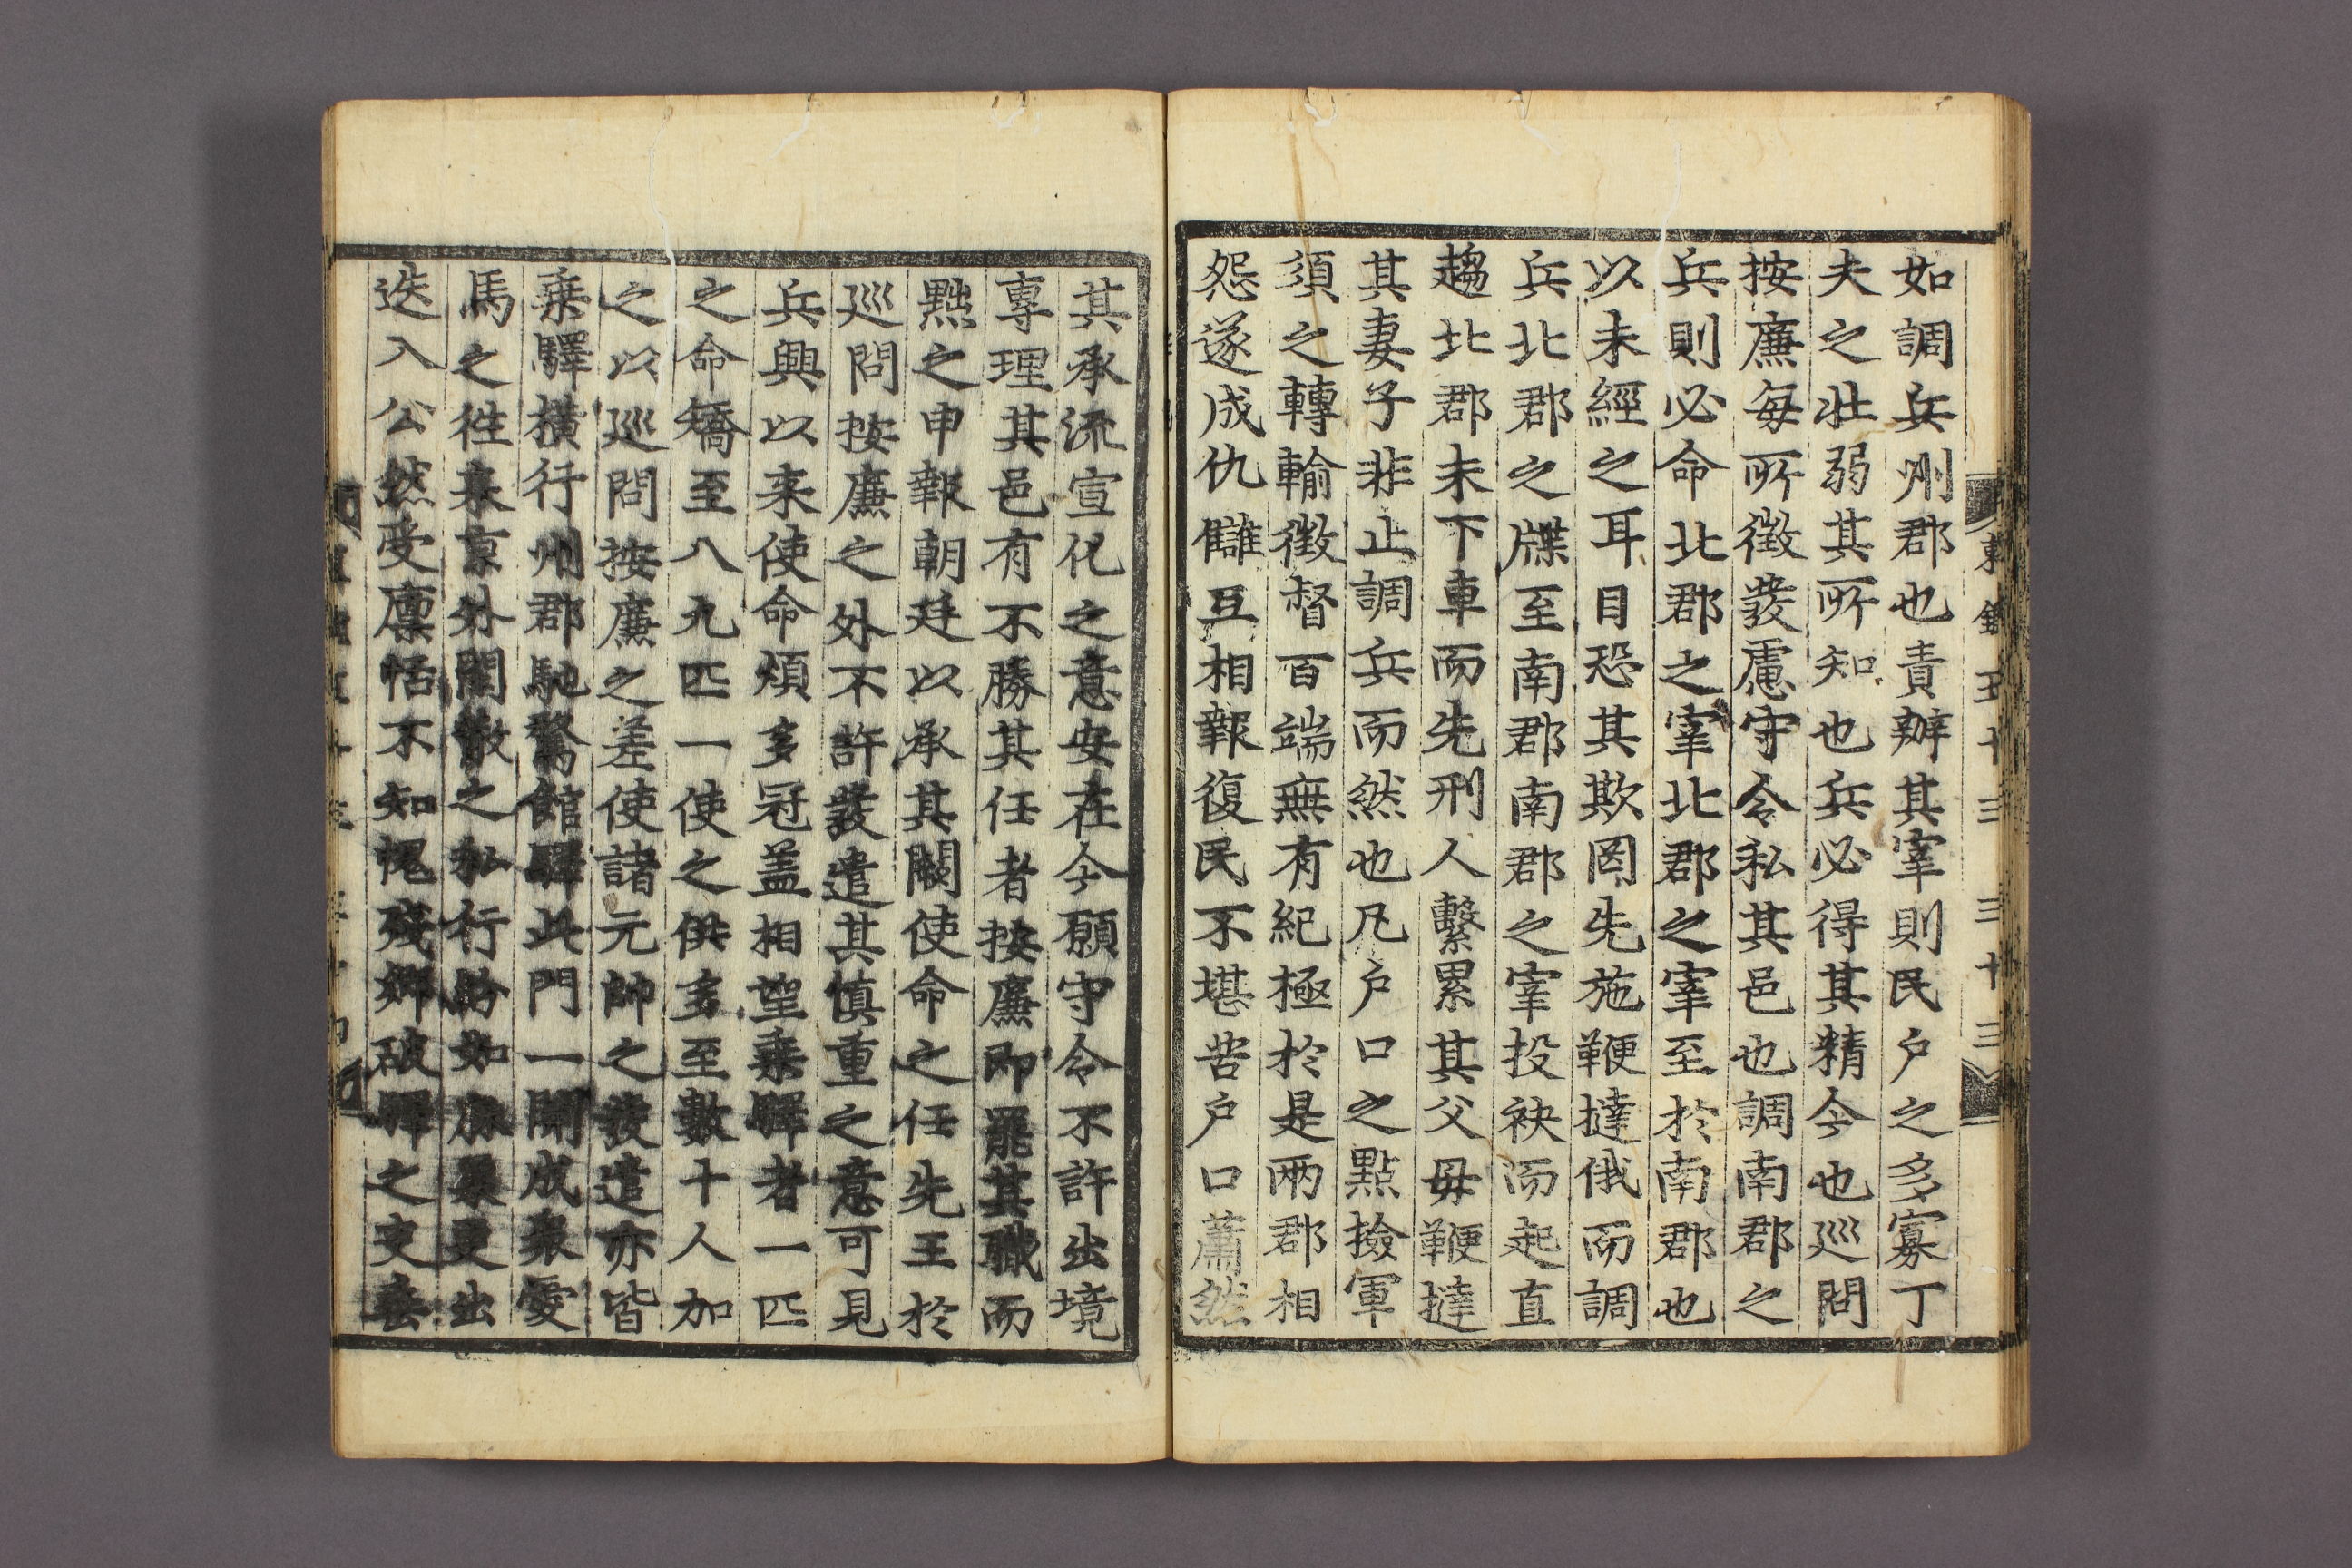 鑑五十三 三十三
如調兵州郡也責辦其宰則民戶之多寡丁
夫之壯弱其所知也兵必得其精今也巡問
按廉每所徵發慮守令私其邑也調南郡之
兵則必命北郡之宰北郡之宰至於南郡也
以未經之耳目恐其欺罔先施鞭撻俄而調
兵北郡之牒至南郡南郡之宰投袂而起直
趨北郡未下車而先刑人繫累其父母鞭撻
其妻子非止調兵而然也凡戶口之點撿軍
須之轉輸徵督百端無有紀極於是兩郡相
怨遂成仇讎互相報復民不堪苦戶口蕭然
其承流宣化之意安在今願守令不許出境
專理其邑有不勝其任者按廉即罷其職而
黜之申報朝廷以承其闕使命之任先王於
巡問按廉之外不許發遣其慎重之意可見
兵興以来使命煩多冠盖相望乗驛者一匹
之命矯至八九匹一使之供多至數十人加
之以巡問按廉之差使諸元帥之發遣亦皆
乗驛橫行州郡馳騖館驛此門一開成衆雯
馬之徃来京外閑散之私行
迭入公然受廪恬不知愧殘鄕破驛之吏